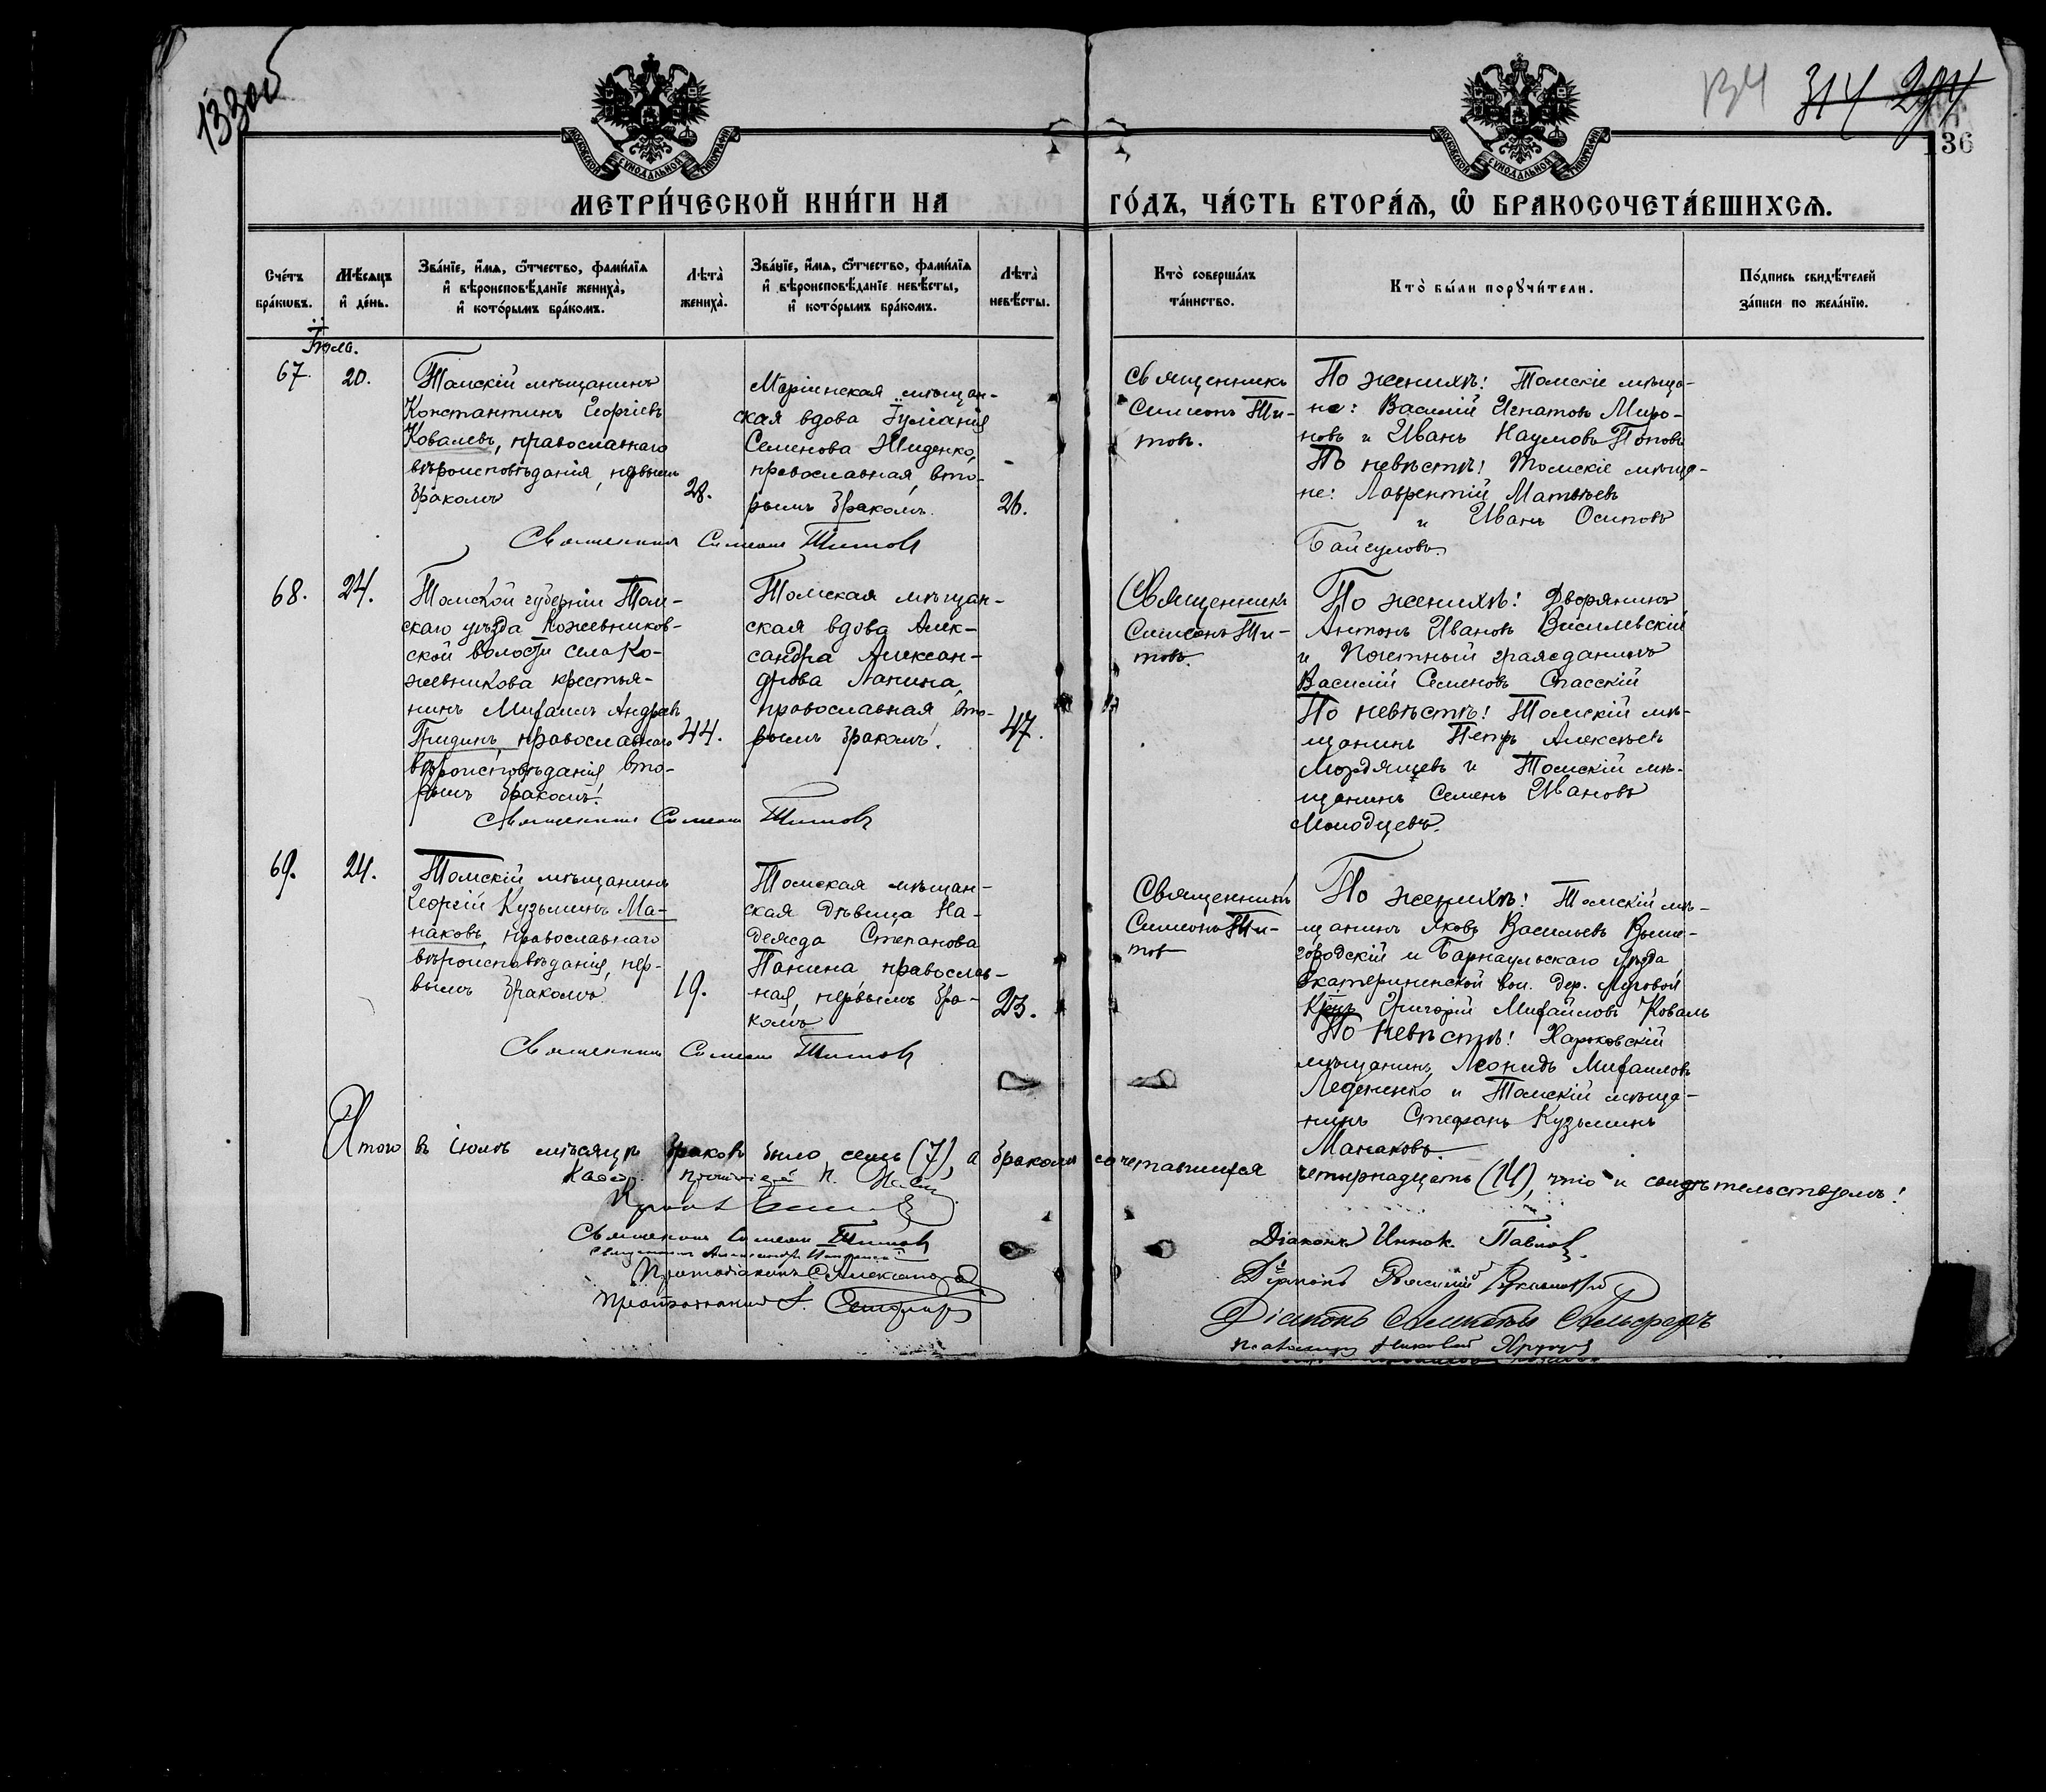 133об
134 314 294
136
МОСКОВСКОЙ СУНОДАЛЬНОЙ ТИПОГРАФІИ
МОСКОВСКОЙ СУНОДАЛЬНОЙ ТИПОГРАФІИ
МЕТРИ́ЧЕСКОЙ КНИ́ГИ НА ГО́ДЪ, ЧА́СТЬ ВТОРА́Ѧ, Ѽ БРАКОСОЧЕТА́ВШИХСѦ.
Сче́тъ бра́кѡвъ.
Мѣ́сяцъ и҆ де́нь.
Зва́нїе, и҆́мѧ, ѻ҆́тчество, фами́лїѧ
и҆ вѣроисповѣ́данїе жениха̀,
и҆ кото́рымъ бра́комъ.
Лѣта̀ жениха̀.
Зва́нїе, и҆́мѧ, ѻ҆́тчество, фами́лїѧ
и҆ вѣроисповѣ́данїе невѣ́сты,
и҆ кото́рымъ бра́комъ.
Лѣта̀ невѣ́сты.
Кто̀ соверша́лъ та́инство.
Кто̀ бы́ли порꙋчи́тели.
По́дпись свидѣ́телей за́писи по жела́нїю.
Іюль.
67.
20.
Томскій мѣщанинъ
Константинъ Георгіевъ
Ковалевъ, православнаго
вѣроисповѣданія, первымъ
бракомъ
28.
Маріинская мѣщан-
ская вдова Іуліанія
Семенова Жиденко,
православная, вто-
рымъ бракомъ.
26.
Священникъ
Симеонъ Ти-
товъ.
По женихѣ: Томскіе мѣща-
не: Василій Игнатовъ Миро-
новъ и Иванъ Наумовъ Поповъ
По невѣстѣ: Томскіе мѣща-
не: Лаврентій Матвѣевъ
и Иванъ Осиповъ
Байгуловъ
Священникъ Симеонъ Титовъ
68.
24.
Томской губерніи Том-
скаго уѣзда Кожевников-
ской волости села Ко-
жевникова крестья-
нинъ Михаилъ Андреевъ
Гридинъ, православнаго
вѣроисповѣданія, вто-
рымъ бракомъ.
44.
Томская мѣщан-
ская вдова Алек-
сандра Алексан-
дрова Лапина,
православная, вто-
рымъ бракомъ.
47.
Священникъ
Симеонъ Ти-
товъ.
По женихѣ: Дворянинъ
Антонъ Ивановъ Василевскій
и Почетный гражданинъ
Василій Семеновъ Спасскій
По невѣстѣ: Томскій мѣ-
щанинъ Петръ Алексѣевъ
Мордяшевъ и Томскій мѣ-
щанинъ Семенъ Ивановъ
Молодцевъ.
Священникъ Симеонъ Титовъ
69.
24.
Томскій мѣщанинъ
Георгій Кузьминъ Ма-
наковъ, православнаго
вѣроисповѣданія, пер-
вымъ бракомъ
19.
Томская мѣщан-
ская дѣвица На-
дежда Степанова
Панина православ-
ная, первымъ бра-
комъ
23.
Священникъ
Симеонъ Ти-
товъ
По женихѣ: Томскій мѣ-
щанинъ Яковъ Васильевъ Выше-
городскій и Барнаульскаго уѣзда
Екатерининской вол. дер. Луговой
Кр-нъ Григорій Михайловъ Коваль
По невѣстѣ: Харьковскій
мѣщанинъ Леонидъ Михаиловъ
Леденко и Томскій мѣща-
нинъ Стефанъ Кузьминъ
Манаковъ.
Священникъ Симеонъ Титовъ
Итого въ іюлѣ мѣсяцѣ браковъ было семь (7), а бракомъ сочетавшихся четырнадцать (14), что и свидѣтельствуемъ:
Священникъ Симеонъ Титовъ
Священникъ Александръ
Протодіаконъ Александр
Діаконъ Иннок. Павлов.
Діаконъ Василій
Діаконъ